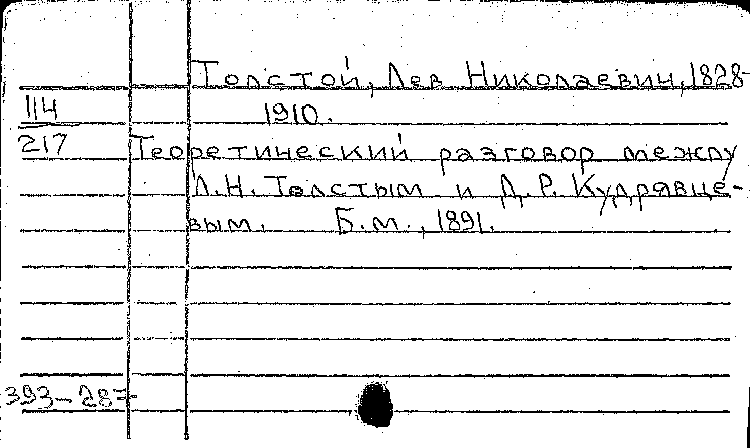 Толстой, Лев Николаевич, 1828-
114
1910.
217
Теоретический разговор между
Л.Н. Толстым и Д.Р. Кудрявце-
вым. Б.м., 1891.
393-287